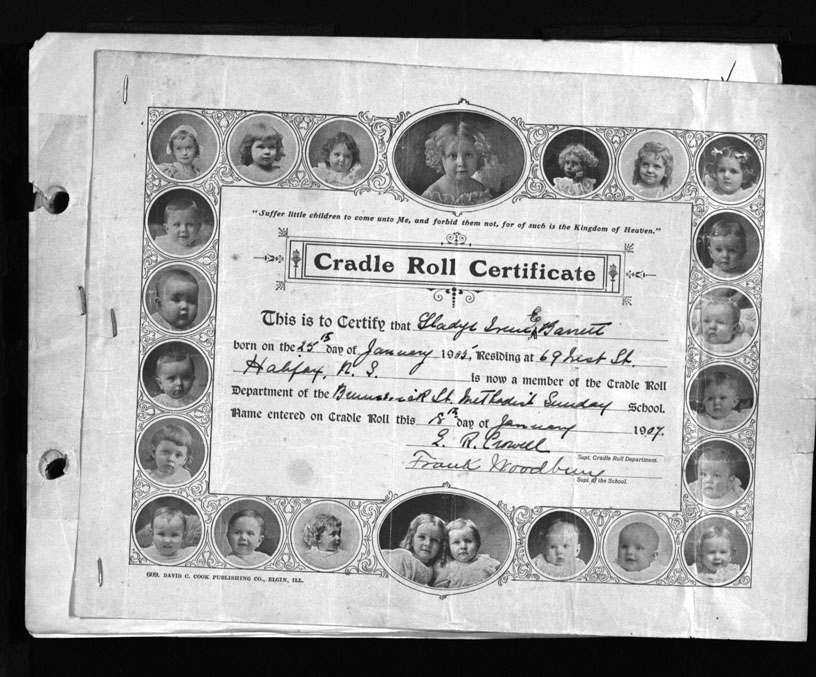 "Suffer little children to come unto Me, and forbid them not, for of such is the Kingdom of Heaven."
Cradle Roll Certificate
This is to Certify that Gladys Irene E Barrett
born on the 25th day of January 1905, Residing at 69 West St.
Halifax, N. S. is now a member of the Cradle Roll
Department of the Brunswick St. Methodist Sunday School.
Name entered on Cradle Roll this 8th day of January 1907.
E. R. Crowell
Supt. Cradle Roll Department.
Frank Woodbury
Supt. of the School.
609. DAVID C. COOK PUBLISHING CO., ELGIN, ILL.